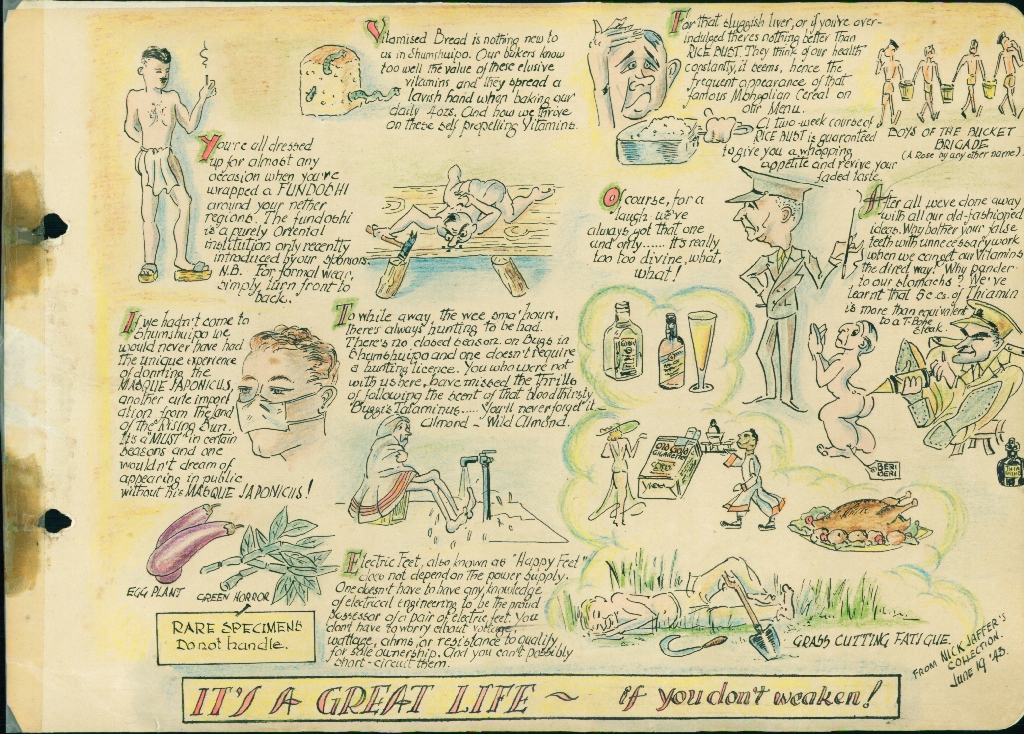 Vitamised Bread is nothing new to
us in Shumshuipo. Our bakers know
too well the value of these elusive
vitamins and they spread a
lavish hand when baking our
daily 4ozs. And how we thrive
on these self propelling Vitamins.
For that sluggish liver, or if you're over-
indulged there's nothing better than
RICE DUST. They think of our health
constantly, it seems, hence the
frequent appearance of that
famous Mongolian Cereal on
our Menu.
A two-week course of
RICE DUST is guaranteed
to give you a whopping
appetite and revive your
jaded taste.
BOYS OF THE BUCKET
BRIGADE
(A Rose by any other name)
You're all dressed
up for almost any
occasion when you're
wrapped a FUNDOSHI
around your nether
regions. The fundoshi
is a purely Oriental
institution only recently
introduced by your sponsors
N.B. For formal wear,
simply turn front to
back.
Of course, for a
laugh we've
always got that one
and only...... It's really
too too divine, what,
what!
After all we've done away
with all our old-fashioned
ideas. Why bother your false
teeth with unnecessary work
when we can get our Vitamins
the direct way? Why pander
to our stomachs? We've
learnt that 5 c.cs. of Thiamin
is more than equivalent
to a T-bone
steak.
If we hadn't come to
Shumshuipo we
would never have had
the unique experience
of donning the
MASQUE JAPONICUS,
another cute import
ation from the land
of the Rising Sun.
It's a "MUST" in certain
seasons and one
wouldn't dream of
appearing in public
without his MASQUE JAPONICUS!
To while away the wee sma' hours,
there's always hunting to be had.
There's no closed season on Bugs in
Shumshuipo and one doesn't require
a hunting licence. You who were not
with us here, have missed the thrills
of following the scent of that bloodthirsty
"Buggis Talaminus..... You'll never forget it
almond - Wild Almond.
BERI
BERI
Old Gold
CIGARETTES
EGG PLANT
GREEN HORROR
RARE SPECIMENS
Do not handle.
Electric Feet, also known as "Happy Feet"
does not depend on the power supply.
One doesn't have to have any knowledge
of electrical engineering to be the proud
possessor of a pair of electric feet. You
don't have to worry about voltage,
wattage, ohms or resistance to qualify
for sole ownership. And you can't possibly
short-circuit them.
GRASS CUTTING FATIGUE.
FROM NICK JAFFER'S
COLLECTION.
June 19 '43.
IT'S A GREAT LIFE ~ if you don't weaken!